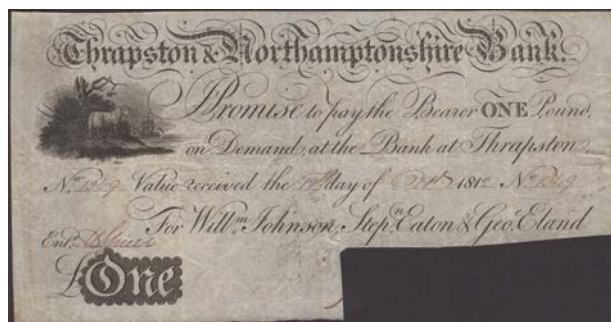 Thrapston & Northamptonshire Bank.
Promise to pay the Bearer ONE Pound,
on Demand, at the Bank at Thrapston,
No. Value received the day of 1812 No.
For Willm. Johnson, Stepn. Eaton & Geo. Eland
Entd.
£One